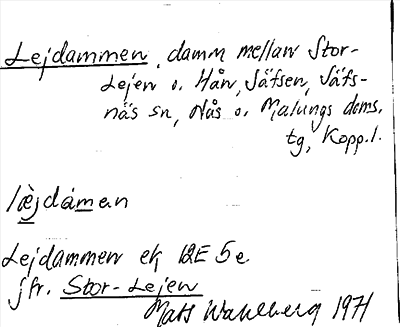 Lejdammen, damm mellan Stor-
Lejen o. Hån, Säfsen, Säfs-
näs sn, Nås o. Malungs doms.
tg, Kopp. l.
læjdámen
Lejdammen ek 12E 5e
jfr. Stor-Lejen
Mats Wahlberg 1971